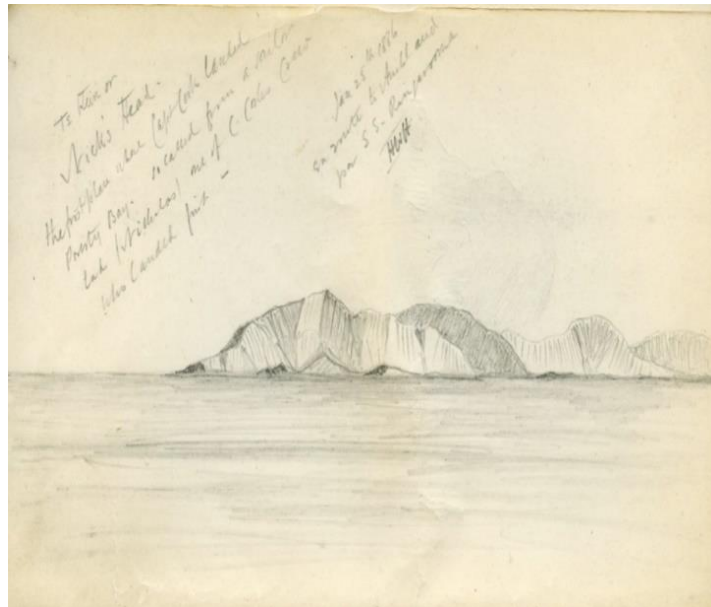 Te Kuri or
Nick's Head -
the first place where Capt Cook landed
Poverty Bay - so called from a sailor
lad (Nicholas) one of C. Cooks Crew
who landed first -
Jan 25th 1886
en route to Auckland
per S.S. Ringarooma